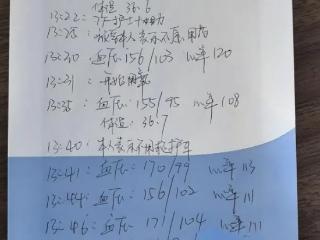 体温 36.6
13:22:
13:25: 本人表示不愿用药
13:30 血压 156/103 心率 120
13:31 开始用氧
13:35: 血压: 155/95 心率 108
体温: 36.7
13:40: 本人表示不用救护车
13:41: 血压: 170/99 心率 113
13:44: 血压: 156/102 心率 111
13:46: 血压: 171/104 心率 111